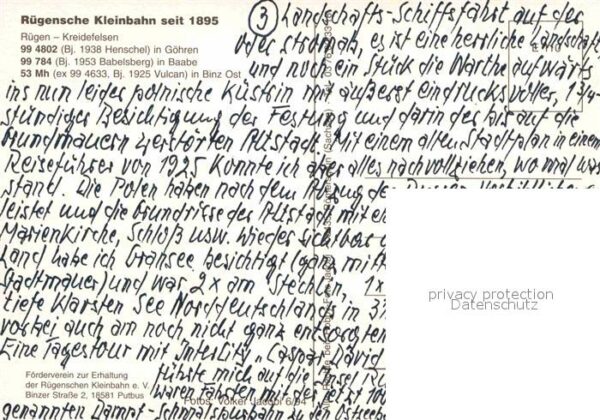 Rügensche Kleinbahn seit 1895
Rügen – Kreidefelsen
99 4802 (Bj. 1938 Henschel) in Göhren
99 784 (Bj. 1953 Babelsberg) in Baabe
53 Mh (ex 99 4633, Bj. 1925 Vulcan) in Binz Ost
③ Landschafts-Schiffsfahrt auf der
Oder stromab, es ist eine herrliche Landschaft
und noch ein Stück die Warthe aufwärts
ins nun leider polnische Küstrin mit äußerst eindrucksvoller, 1¾-
stündiger Besichtigung der Festung und darin der bis auf die
Grundmauern zerstörten Altstadt. Mit einem alten Stadtplan in einem
Reiseführer von 1925 konnte ich aber alles nachvollziehen, wo mal was
stand. Die Polen haben nach dem Abzug der
leistet und die Grundrisse der Altstadt mit
Marienkirche, Schloß usw. wieder sichtbar
Land habe ich Gransee besichtigt (ganz mitt
Stadtmauer) und war 2x am Stechlin, 1x
tiefe klarsten See Norddeutschlands in
vorbei auch am noch nicht ganz entsorgten
Eine Tagestour mit InterCity „Caspar David
führte mich auf die Insel Rü
waren fahrten mit der jetzt so
genannten Dampf-Schmalspurbahn zu den Ostseeb
Förderverein zur Erhaltung
der Rügenschen Kleinbahn e. V.
Binzer Straße 2, 18581 Putbus
Fotos: Volker Jacobi 6/94
privacy protection
Datenschutz